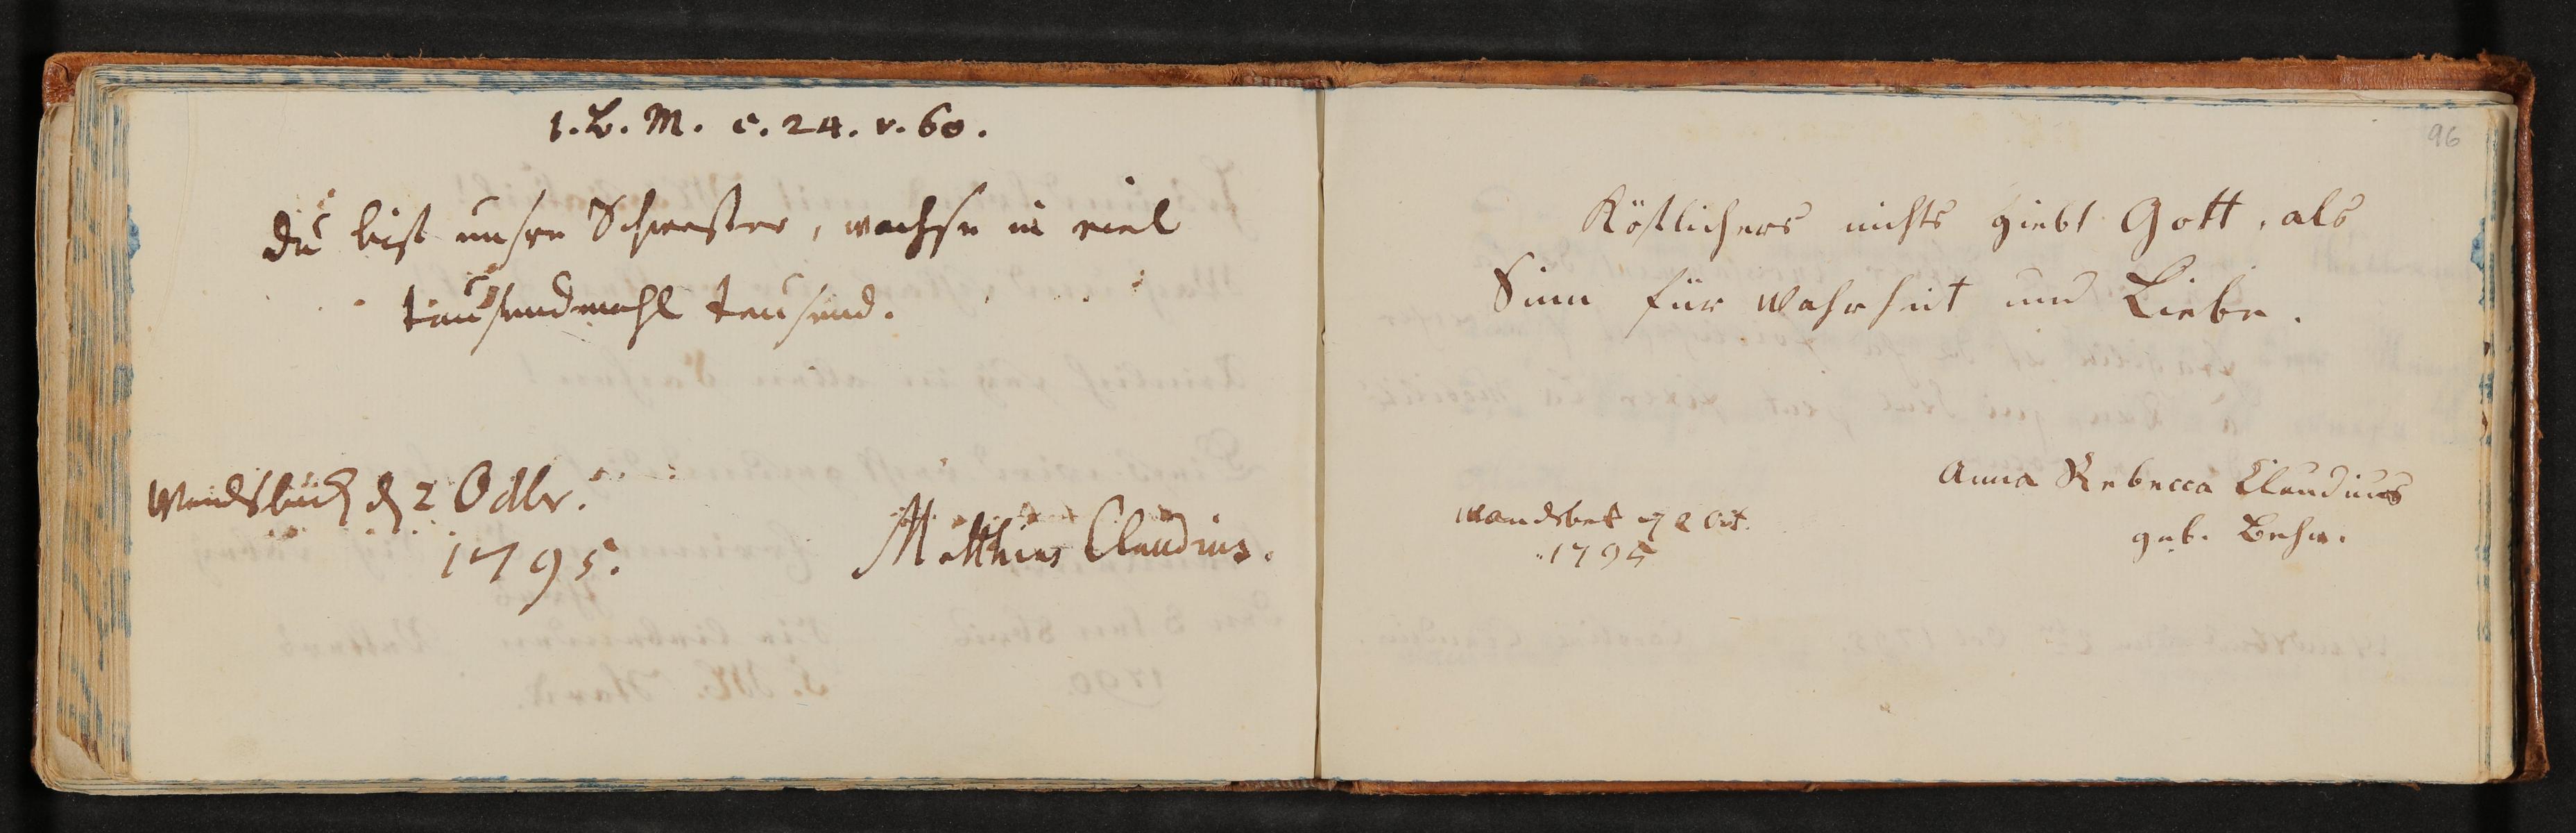 1. B. M. c. 24. v. 60.
Du bist unsre Schwester, wachse in viel
tausendmahl tausend.
Wandsbeck d 2 Octbr.
1795.
Matthias Claudius.
96
Köstlichers nichts giebt Gott, als
Sinn für Wahrheit und Liebe.
Anna Rebecca Claudius
geb. Behn.
Wandsbek d 2 Oct.
1795